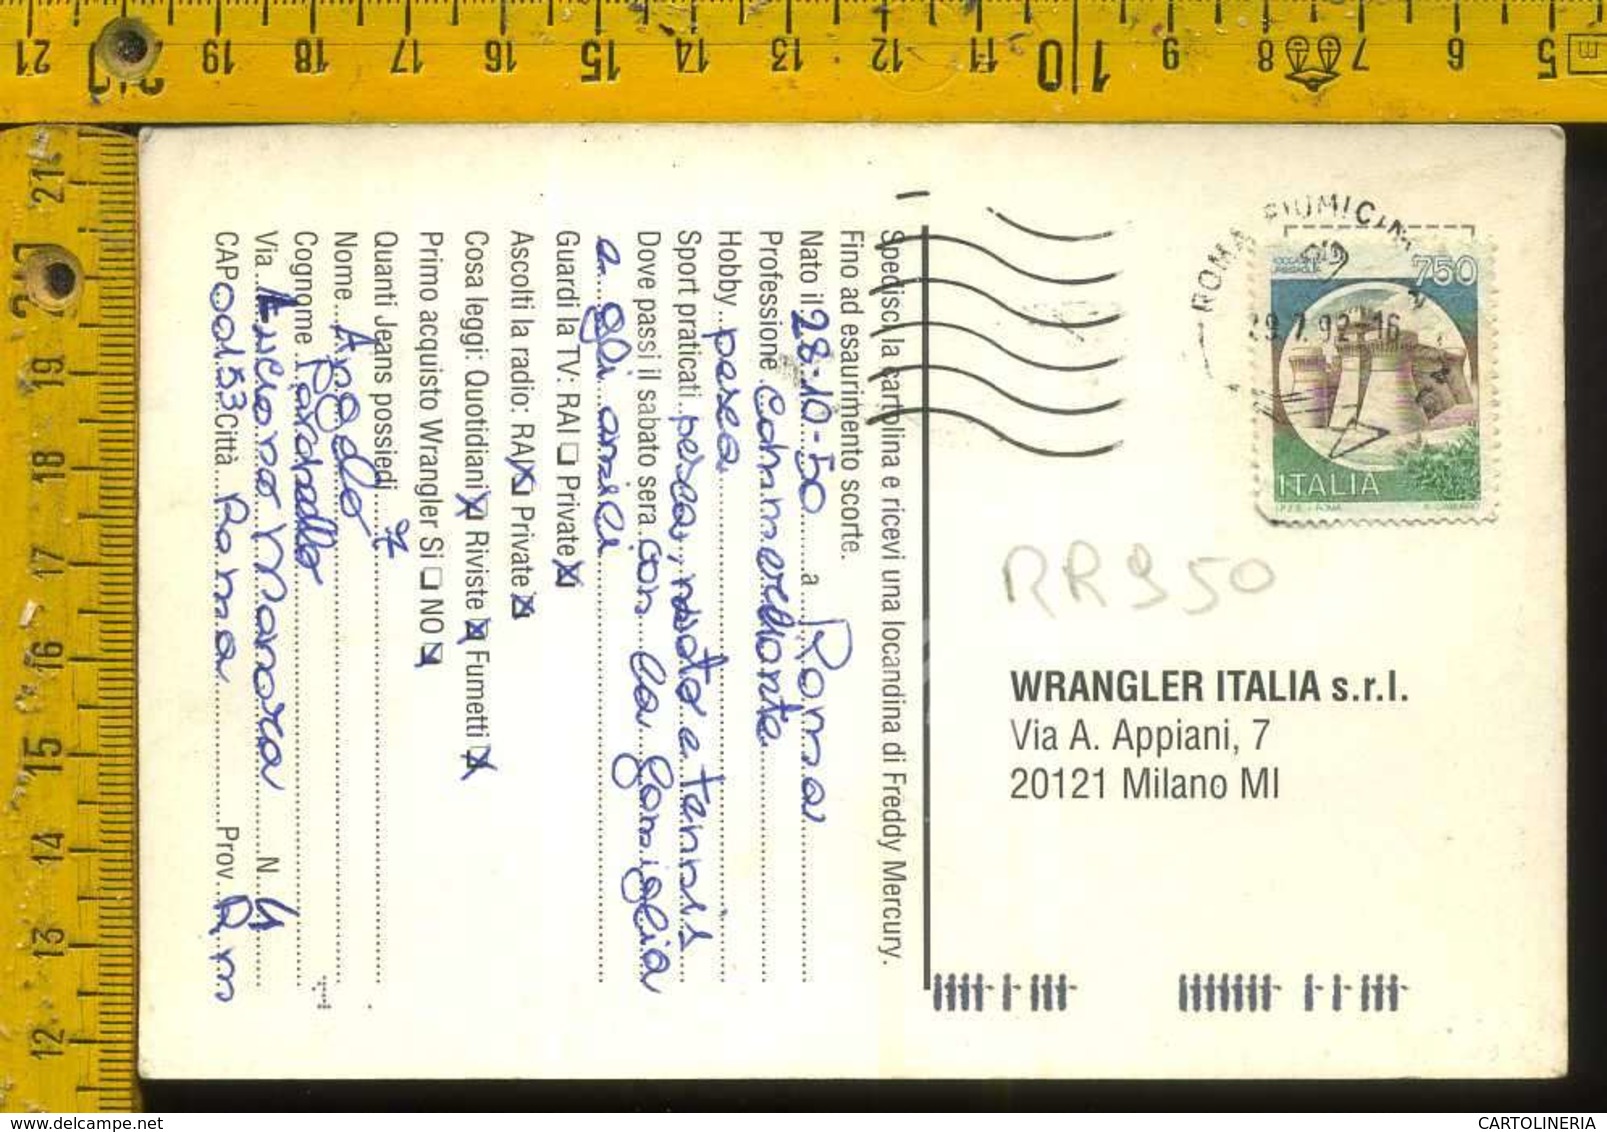 Spedisci la cartolina e ricevi una locandina di Freddy Mercury.
Fino ad esaurimento scorte.
Nato il 28-10-50 a Roma
Professione Commerciante
Hobby pesca
Sport praticati pesca, nuoto e tennis
Dove passi il sabato sera con la famiglia
e gli amici
Guardi la TV: RAI Private
Ascolti la radio: RAI Private
Cosa leggi: Quotidiani Riviste Fumetti
Primo acquisto Wrangler SI NO
Quanti Jeans possiedi 7
Nome Angelo
Cognome
Via N 4
CAP 00153 Città Roma Prov. Rm
ROMA FIUMICINO
29.7.92-16
750
ITALIA
RR950
WRANGLER ITALIA s.r.l.
Via A. Appiani, 7
20121 Milano MI
21 20 19 18 17 16 15 14 13 12 11 10 9 8 7 6 5 m
21 20 19 18 17 16 15 14 13 12
CARTOLINERIA